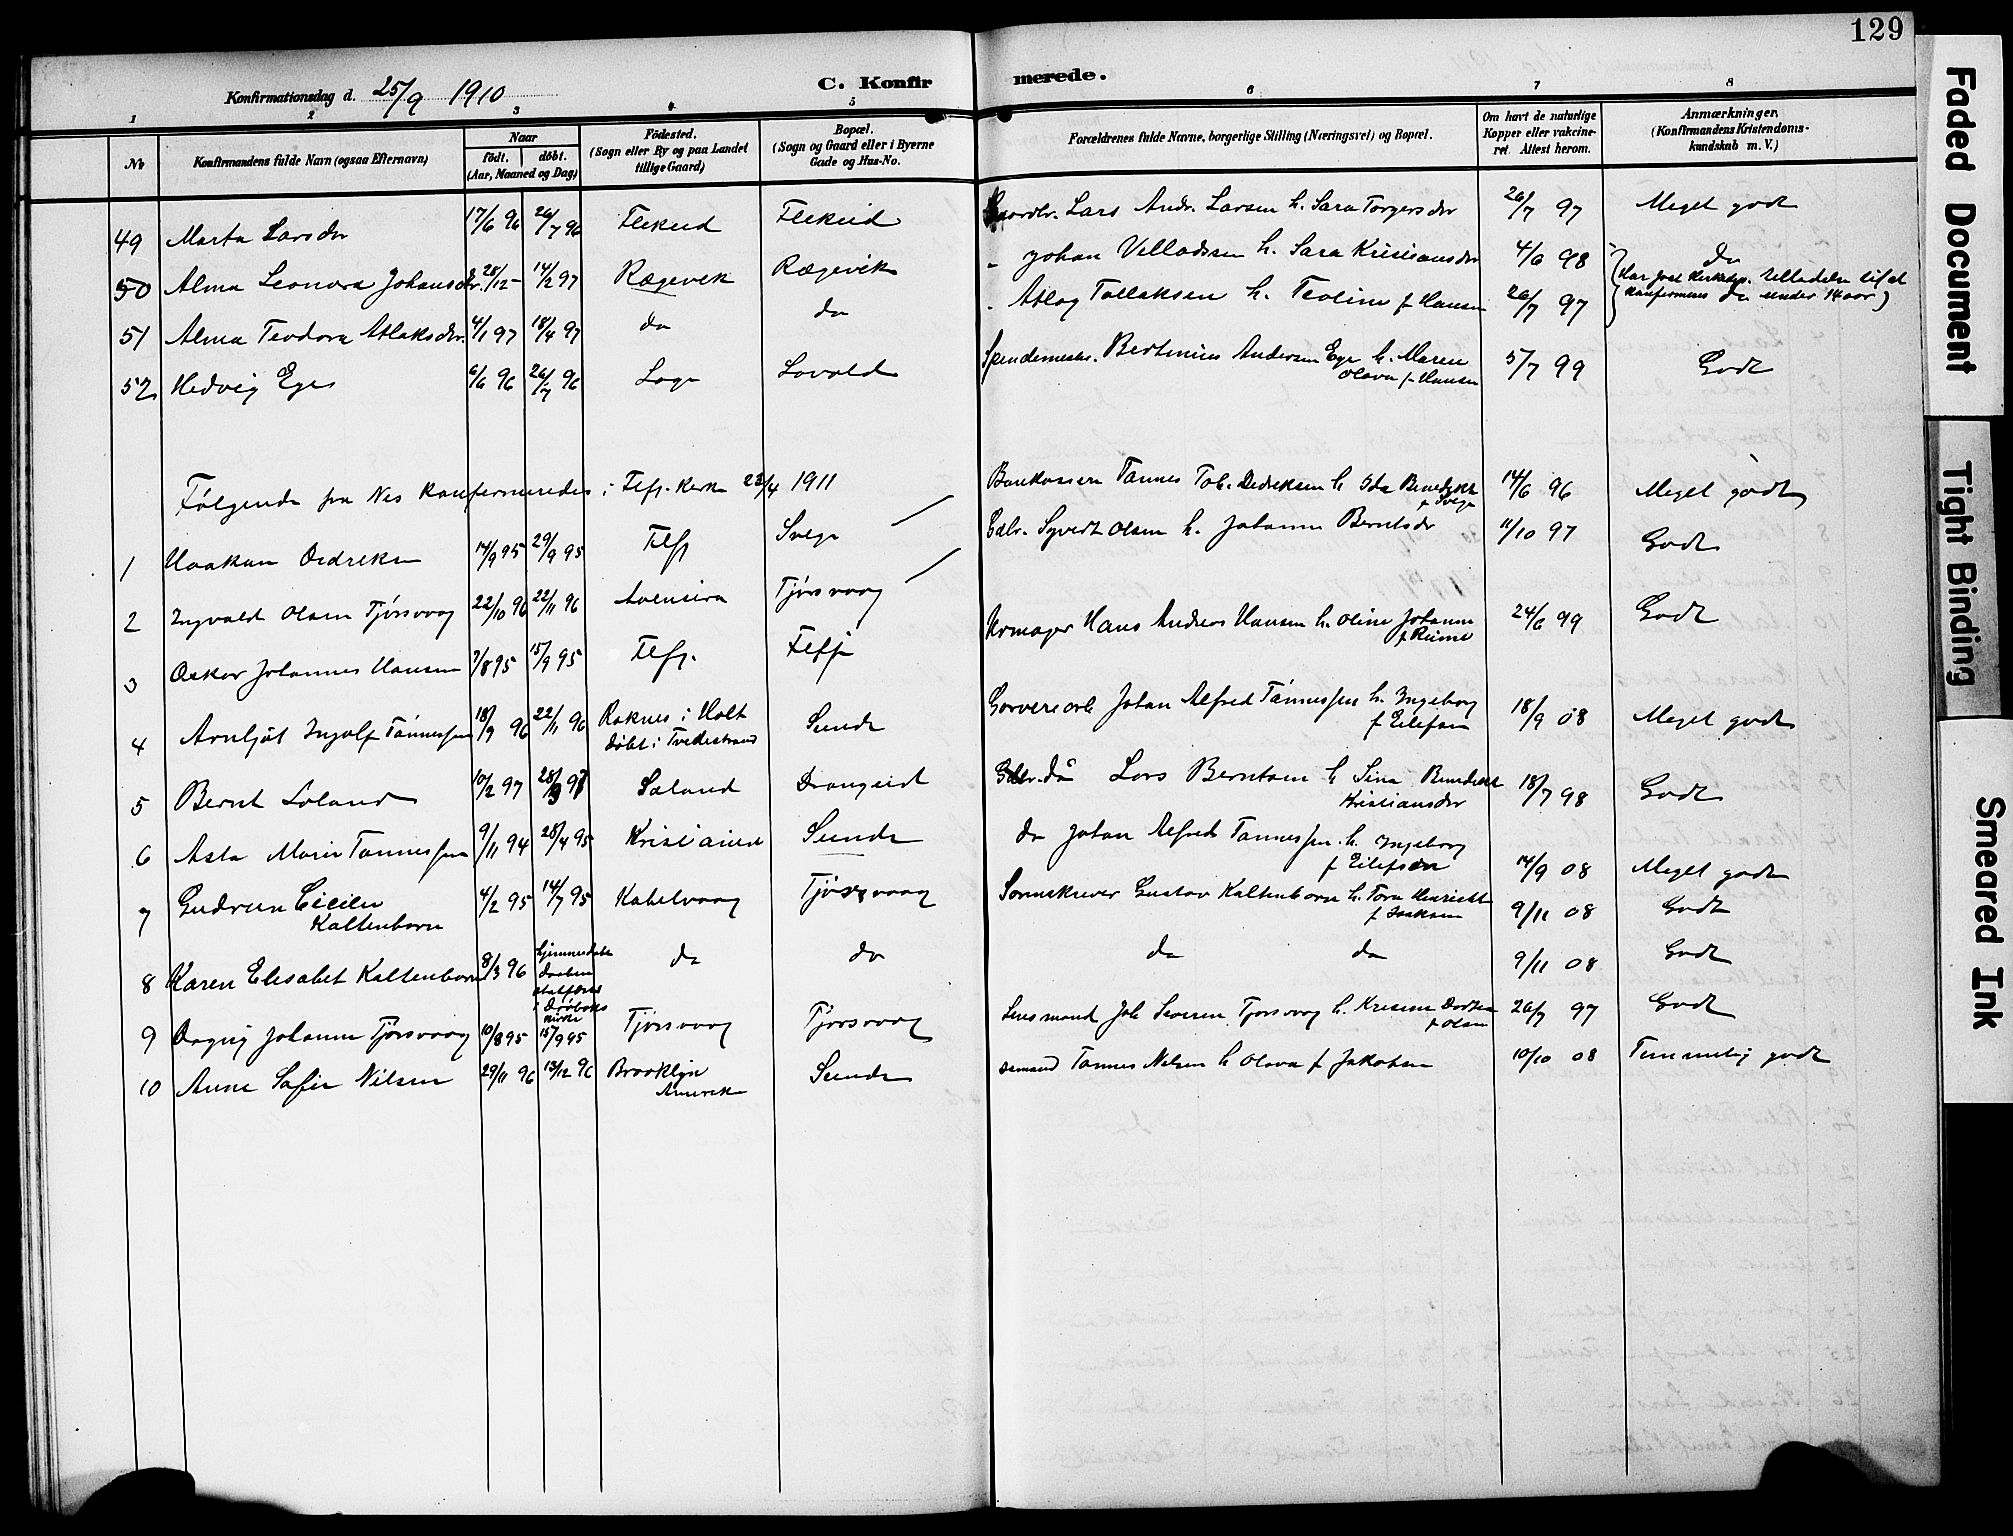 129
Konfirmationsdag d. 25/9 1910
C. Konfir merede.
1 2 3 4 5 6 7 8
No
Konfirmandens fulde Navn (ogsaa Efternavn)
Naar
födt. döbt.
(Aar, Maaned og Dag)
Födested.
(Sogn eller By og paa Landet
tillige Gaard)
Bopæl.
(Sogn og Gaard eller i Byerne
Gade og Hus-No.
Forældrenes fulde Navne, borgerlige Stilling (Næringsvei) og Bopæl.
Om havt de naturlige
Kopper eller vakcine-
ret. Attest herom.
Anmærkninger.
(Konfirmandens Kristendoms-
kundskab m. V.)
49 Marta Larsdr 17/6 96 26/7 96 Flikeid Flikeid Lars Andr. Larsen h. Sara Torgersdr 26/7 97 Meget godt
50 Alma Leonora Johansdr. 28/12 - 14/2 97 Rægevik Rægevik " Johan Velladsen h. Sara Kristiansdr 4/6 98 do
konfirmeres under 14 aar)
51 Alma Teodora Atlaksdr. 4/1 97 18/4 97 do do " Atlag Tollaksen h. Teoline f. Hansen 26/7 97 do
52 Hedvig Ege 6/6 96 26/7 96 Loge Lovold Bertinius Andersen Ege h. Maren
Olava f. Hansen 5/7 99 Godt
Følgende fra Nes konfirmeredes i Flf. kirke 23/4 1911
1 Haakon Dedreksen 14/9 95 29/9 95 Flf Svege Tønnes Tob. Dedreksen h Ida Benedikte
f. Svege 14/6 96 Meget godt
2 Ingvald Olsen Tjørsvaag 22/10 96 22/11 96 Aaensira Tjørsvaag Gdbr. Syvert Olsen h. Johanne Berntsdr 11/10 97 Godt
3 Oskar Johannes Hansen 7/8 95 15/9 95 Flf. Flff Urmager Hans Andreas Hansen h. Oline Johanne
24/6 99 Godt
4 Arnljot Ingolf Tønnessen 18/9 96 22/11 96 Raknes i Holt
døbt i Tvedestrand Sunde Johan Alfred Tønnessen h. Ingeborg
f Eilefsen 18/9 08 Meget godt
5 Bernt Søland 10/2 97 28/3 97 Søland Drangeid Lars Berntsen h Sina Benedikte
Kristiansdr 18/7 98 Godt
6 Asta Marie Tønnessen 9/11 94 28/4 95 Kristiania Sunde do Johan Alfred Tønnessen h. Ingeborg
f Eilefsen 14/9 08 Meget godt
7 Gudrun Cicilie
Kaltenborn 4/2 95 14/7 95 Kabelvaag Tjørsvaag Sorenskriver Gustav Kaltenborn h. Tora Henriette
f. Isaksen 9/11 08 Godt
8 Karen Elisabet Kaltenborn 8/3 96 hjemmedøbt
daaben
stadfæstet
i Drøbaks
kirke do do do do 9/11 08 Godt
9 Dagny Johanne Tjørsvaag 10/8 95 15/9 95 Tjørsvaag Tjørsvaag Joh Severin Tjørsvaag h. Kristine Dortea
f Olsen 26/7 97 Godt
10 Anne Sofie Nilsen 29/11 96 13/12 96 Brooklyn
Amerika Sunde sømand Tønnes Nilsen h Olava f Jakobsen 10/10 08 Temmelig godt
Faded Document
Tight Binding
Smeared Ink